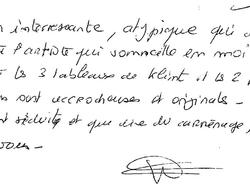 interressante, atypique qu'
l'artiste qui sommeille en moi
les 3 tableaux de Klint. et les 2
sont accrocheuses et originals -
séduite et que dire du carménage,
vous -